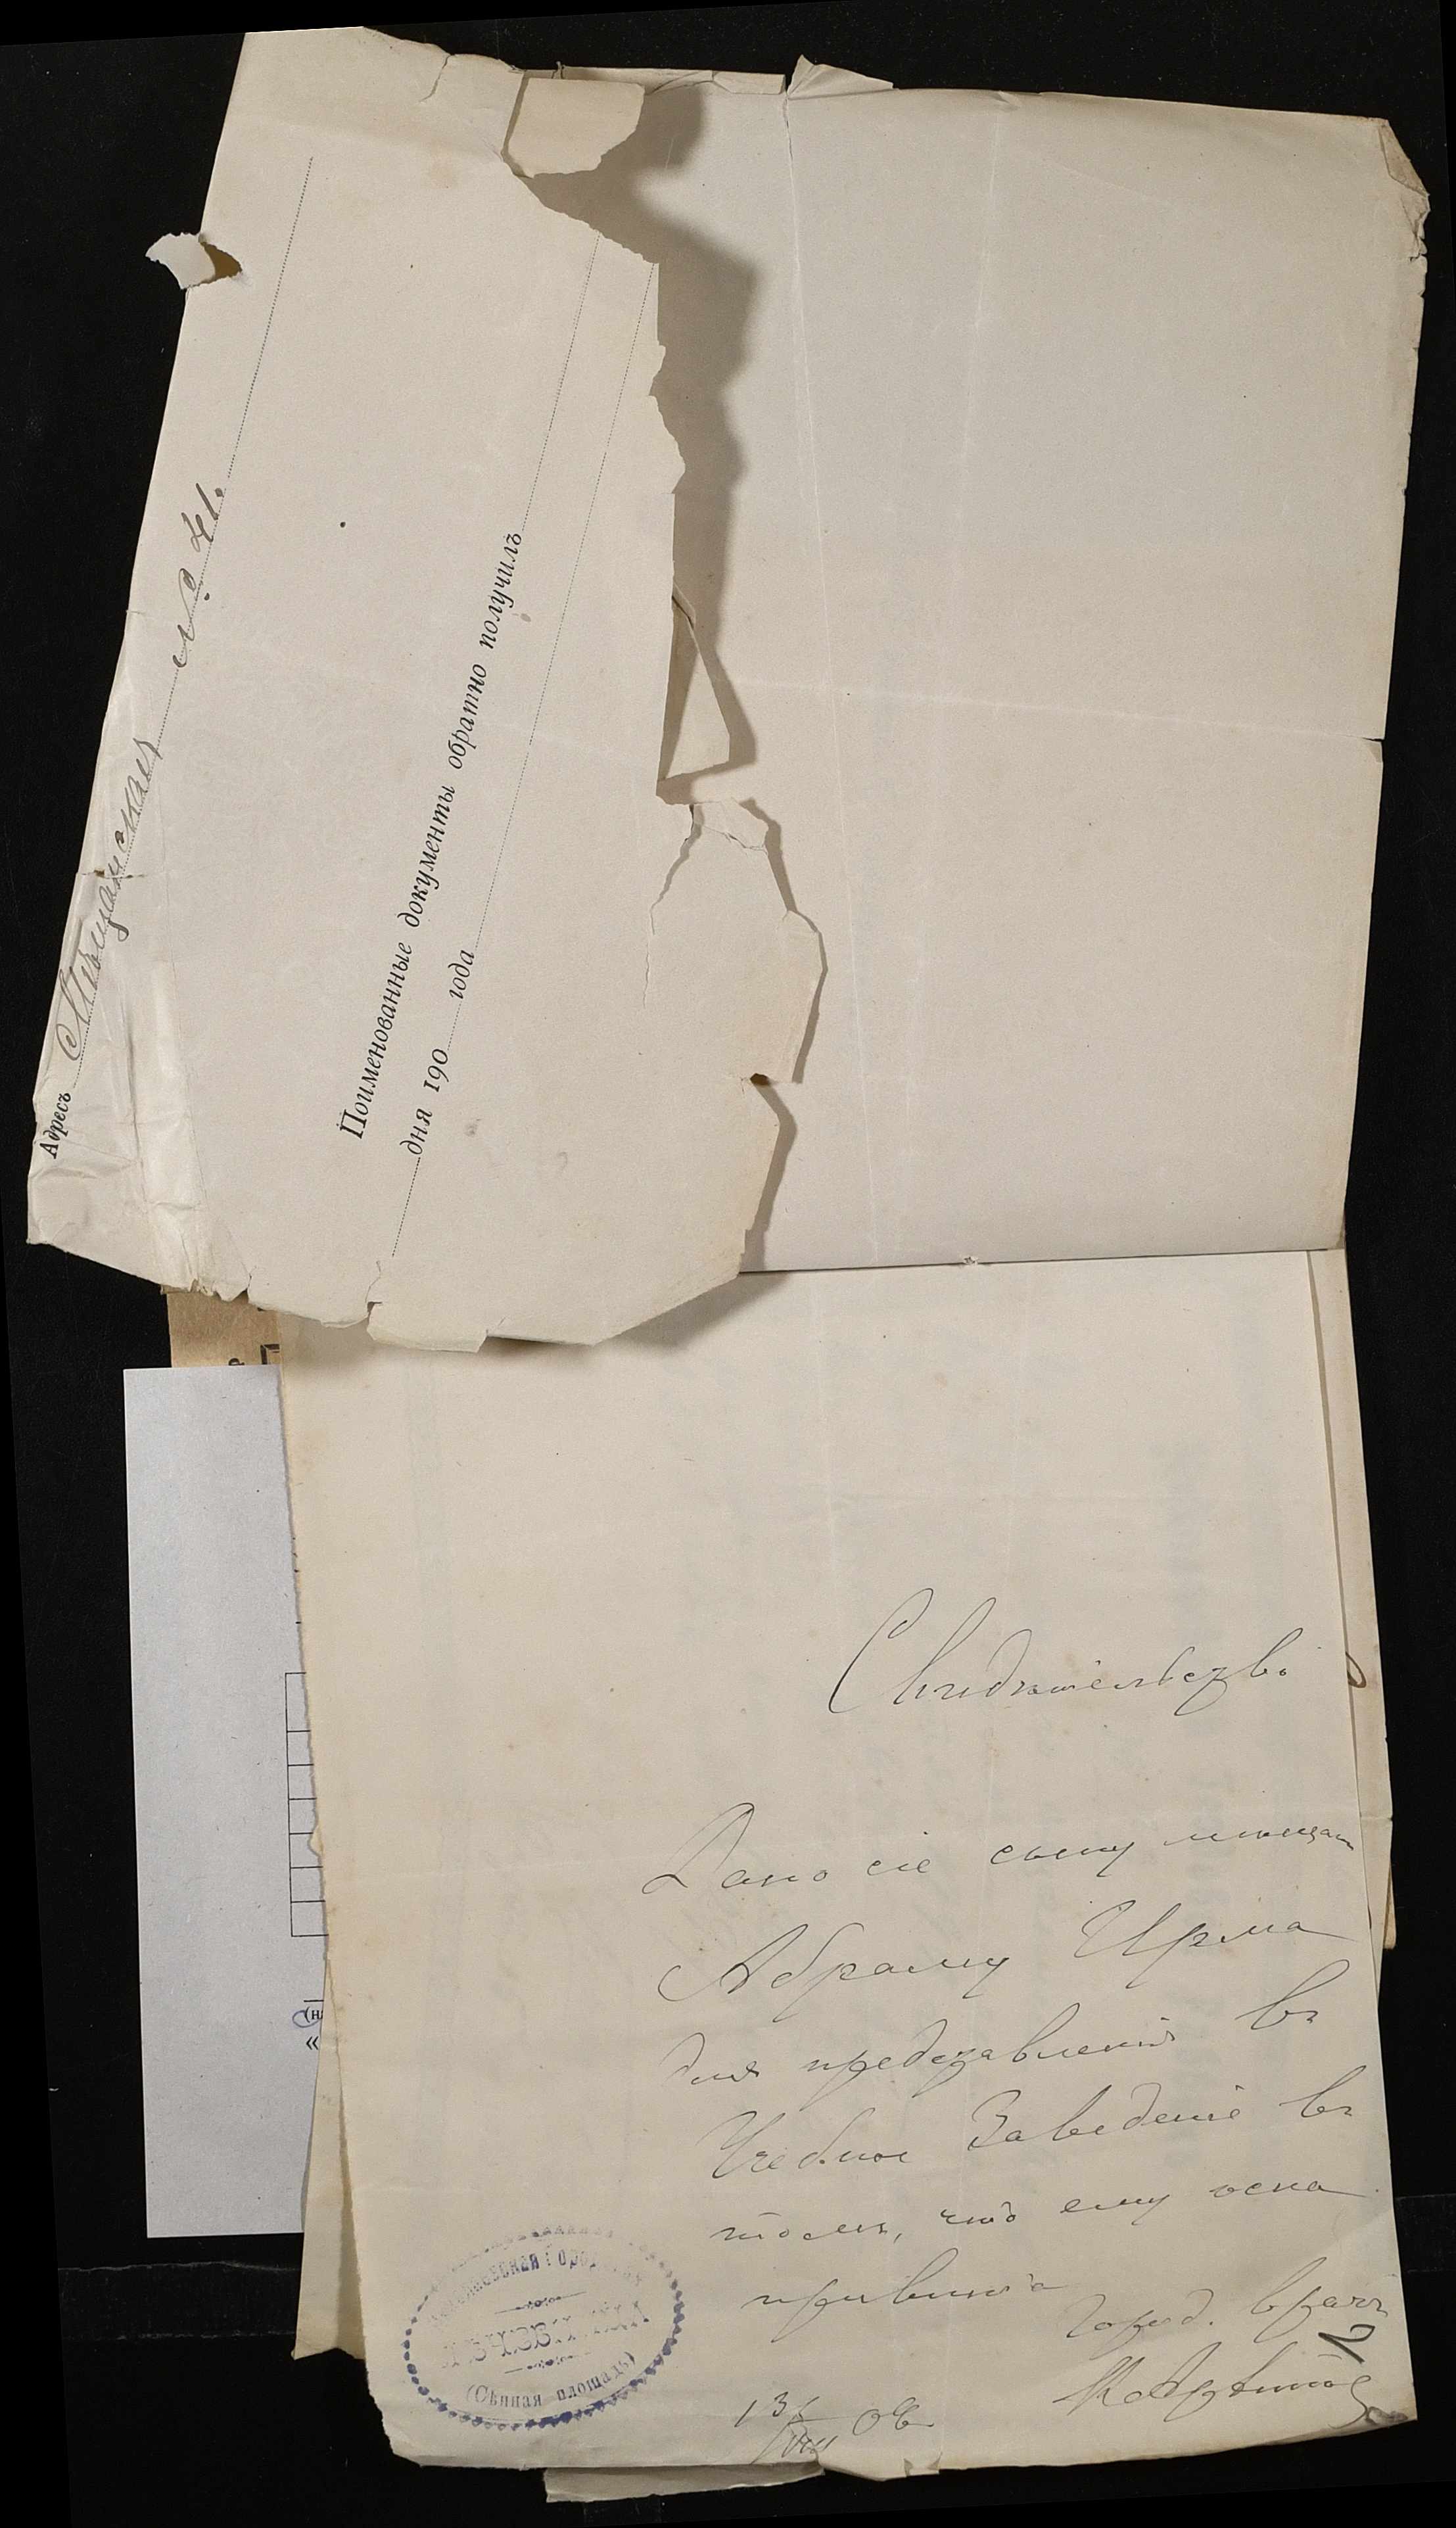 Адресъ Мѣщанская № 41.
Поименованные документы обратно получилъ
дня 190 года
Свидѣтельство
Дано сіе сыну мѣщан
Абраму Ирма
для представленія въ
Учебное Заведеніе въ
томъ, что ему оспа
привита
Город. врачъ
13/VIII 08
Городская
ЛѢЧЕБНИЦА
(Сѣнная площадь)
(на
«